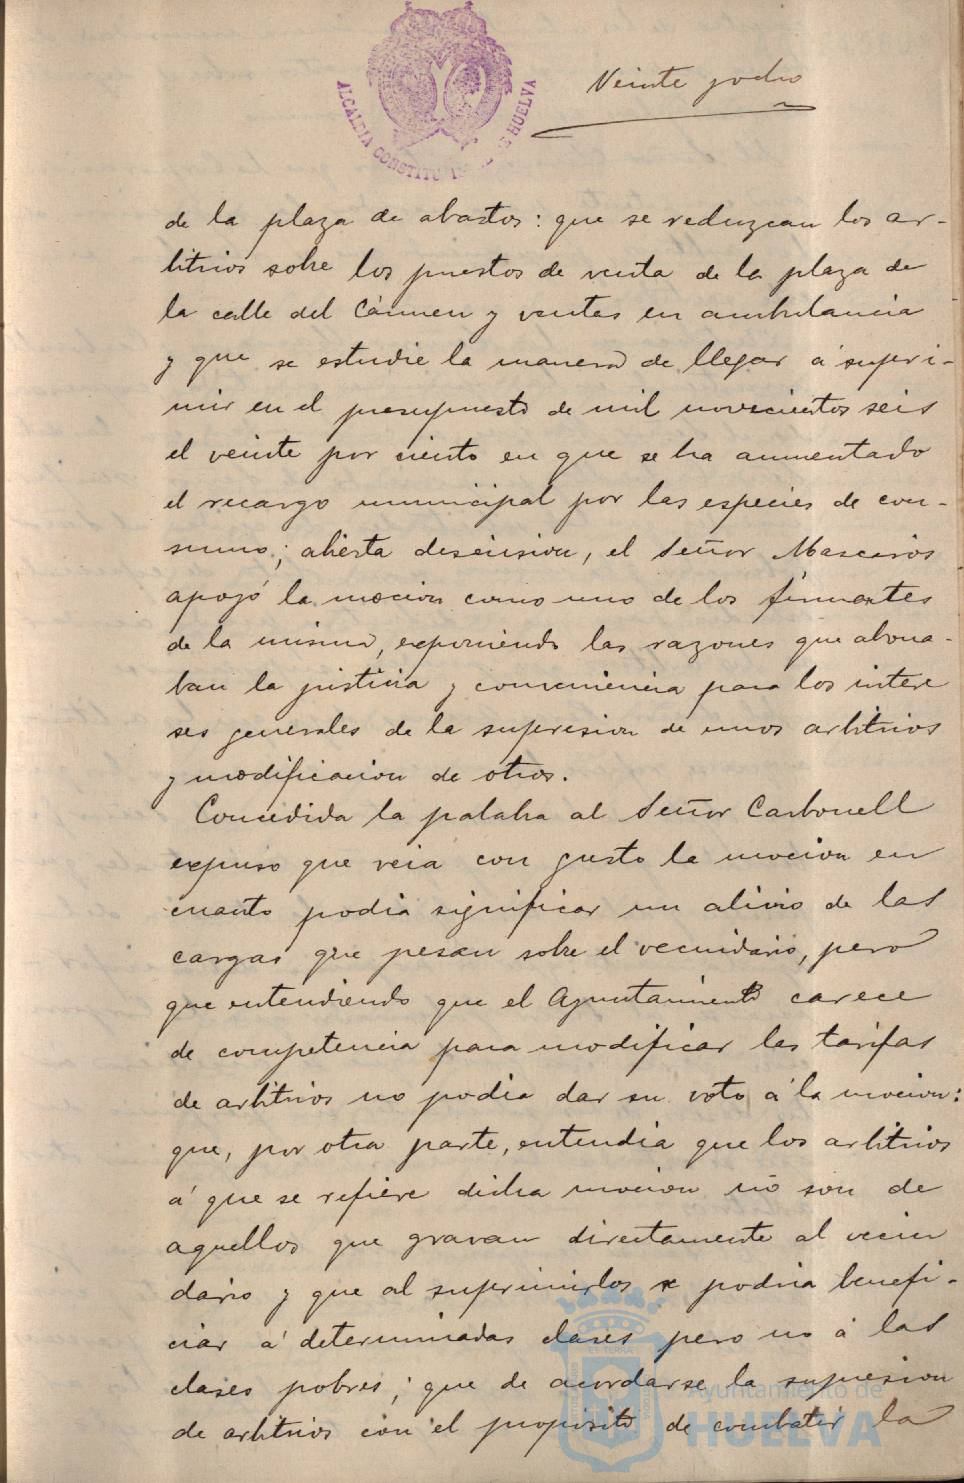 ALCALDIA CONSTITU HUELVA
Veinte y ocho
de la plaza de abastos: que se reduzcan los ar-
bitrios sobre los puestos de venta de la plaza de
la calle del Cármen y ventas en ambulancia
y que se estudie la manera de llegar á supri-
mir en el presupuesto de mil novecientos seis
el veinte por ciento en que se ha aumentado
el recargo municipal por las especies de con-
sumo; abierta descusion, el Señor Mascarós
apoyó la mocion como uno de los firmantes
de la misma, exponiendo las razones que abona-
ban la justicia y conveniencia para los intere
ses generales de la supresion de unos arbitrios
y modificacion de otros.
Concedida la palabra al Señor Carbonell
expuso que veia con gusto la mocion en
cuanto podia significar un alivio de las
cargas que pesan sobre el vecindario, pero
que entendiendo que el Ayuntamiento carece
de competencia para modificar las tarifas
de arbitrios no podia dar su voto á la mocion:
que, por otra parte, entendia que los arbitrios
á que se refiere dicha mocion no son de
aquellos que gravan directamente al vecin
dario y que al suprimirlos se podria benefi-
ciar á determinadas clases pero no á las
clases pobres; que de acordarse la supresion
de arbitrios con el proposito de combatir la
Ayuntamiento de
HUELVA